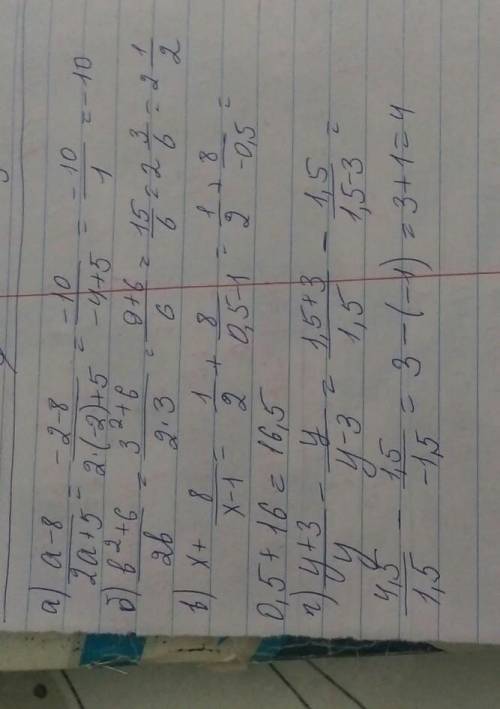 а) (a-8)/(2a+5) = (-2-8)/(2·(-2)+5) = (-10)/(-4+5) = (-10)/1 = -10
б) (b²+6)/(2b) = (3²+6)/(2·3) = (9+6)/6 = 15/6 = 2 3/6 = 2 1/2
в) x + 8/(x-1) = 1/2 + 8/(0,5-1) = 1/2 + 8/(-0,5) =
0,5+16 = 16,5
г) (y+3)/y - y/(y-3) = (1,5+3)/1,5 - 1,5/(1,5-3) =
4,5/1,5 - 1,5/(-1,5) = 3-(-1) = 3+1 = 4